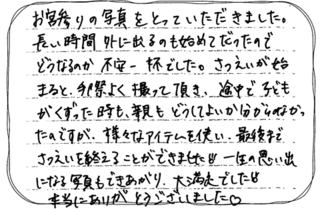 お宮参りの写真をとっていただきました。
長い時間外に出るのも始めてだったので
どうなるのか不安一杯でした。さつえいが始
まると、手際よく撮って頂き、途中で子ども
がぐずった時も、親もどうしてよいか分からなかっ
たのですが、様々なアイテムを使い、最後まで
さつえいを終えることができました!! 一生の思い出
になる写真もできあがり、大満足でした!!
本当にありがとうございました♡